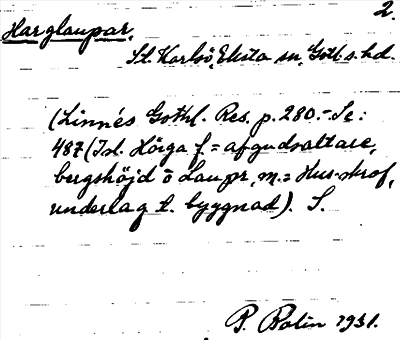 2.
Harglaupar,
St. Karlsö, Eksta sn, Gotl. s. hd.
(Linnés Gothl. Res. p. 280.- Se:
487 (Isl. Hörga f. = afgudsaltare,
bergshöjd o Laupr, m. = Hus-skrof,
underlag t. byggnad). S.
P. Bolin 1931.